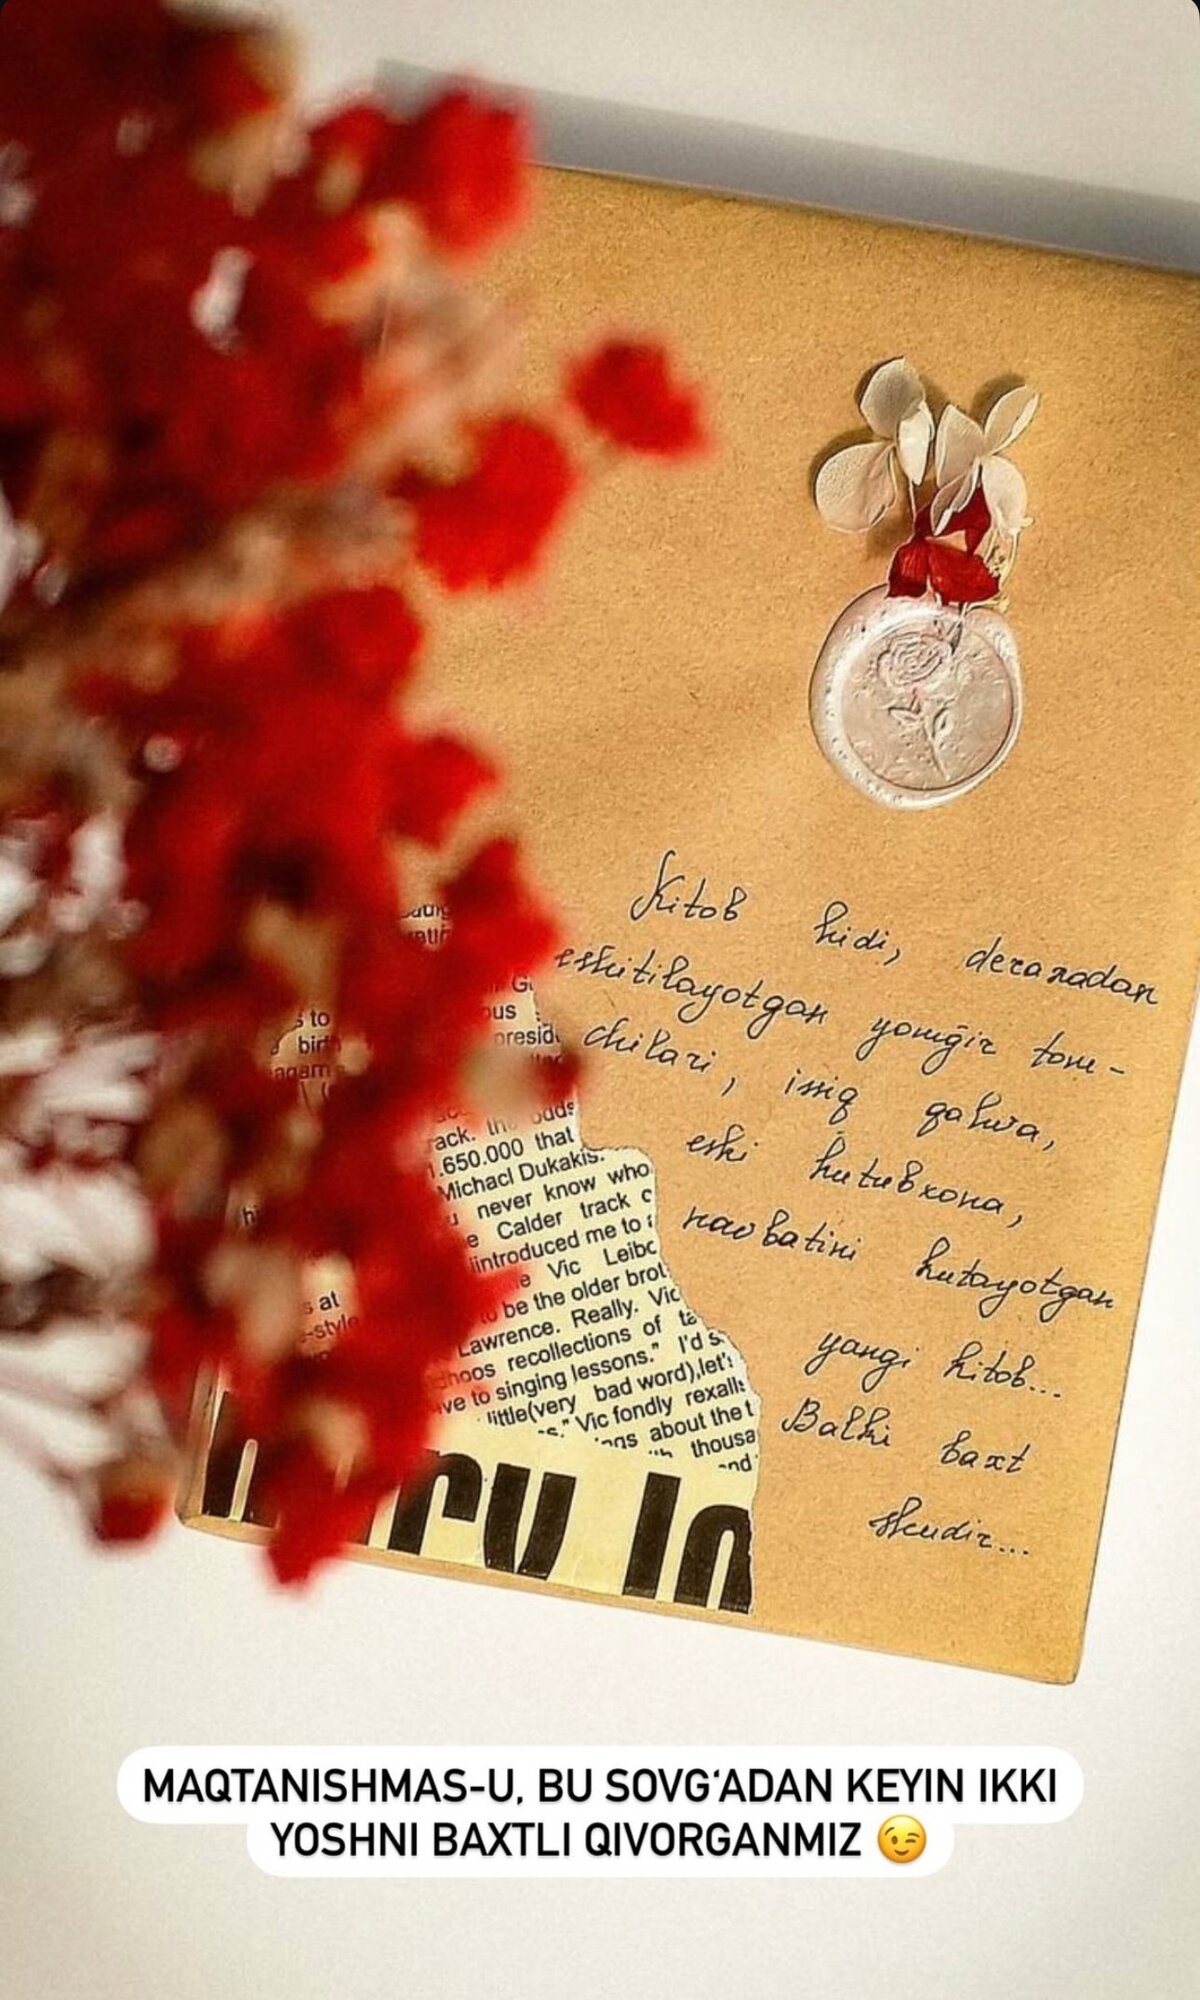 Kitob hidi, derazadan
eshitilayotgan yomg'ir tom-
chilari, issiq qahva,
eski kutubxona,
navbatini kutayotgan
yangi kitob...
Balki baxt
shudir...
s to
birth
presid
ack. the odds
1.650.000 that
Michacl Dukakis.
never know who
e Calder track c
introduced me to
e Vic Leibo
to be the older brot
Lawrence. Really. Vic
hoos recollections of ta
ve to singing lessons." I'd s
little(very bad word),let'
s." Vic fondly rexalls
ngs about the t
thousa
and
s at
-style
ry lo
MAQTANISHMAS-U, BU SOVG‘ADAN KEYIN IKKI
YOSHNI BAXTLI QIVORGANMIZ 😉